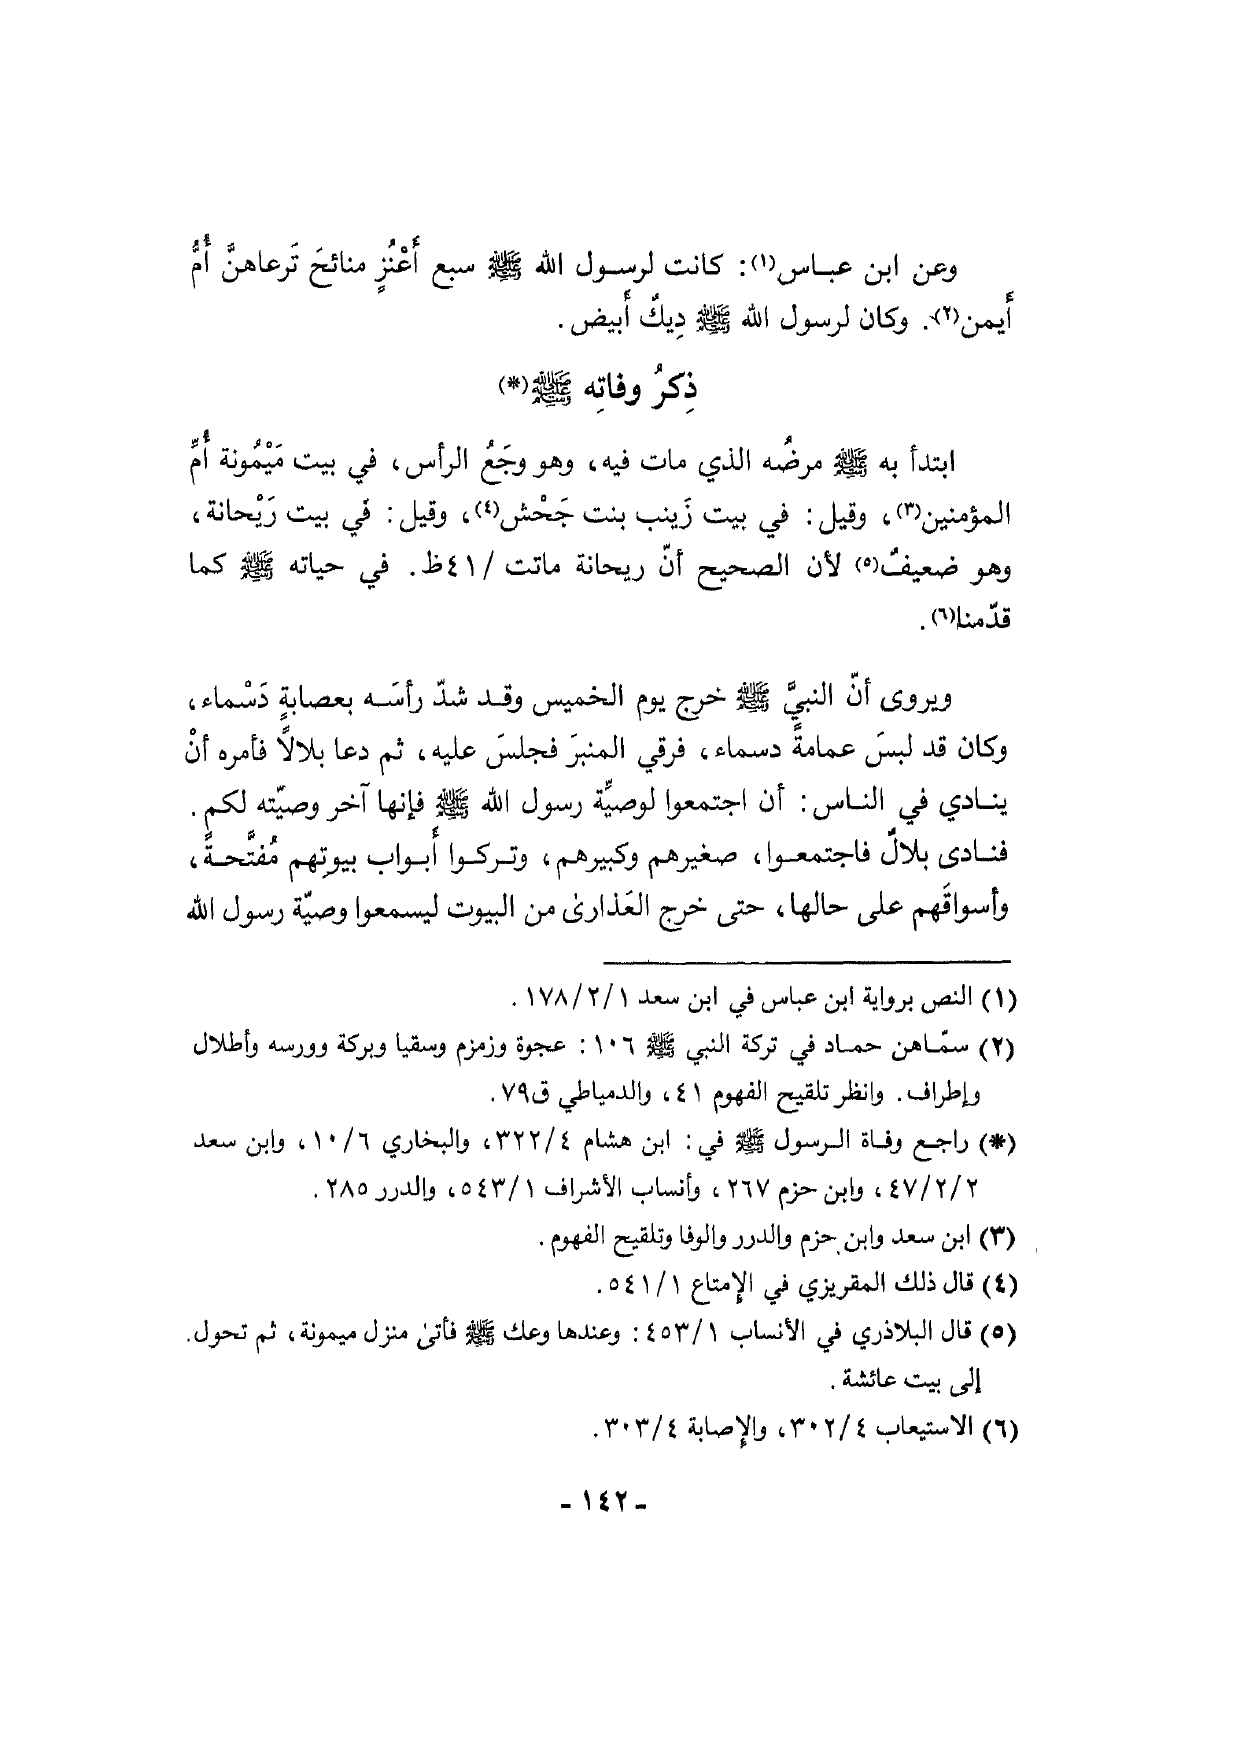 وعن ابن عبـاس(١): كانت لرسـول الله ﷺ سبع أَعْنُزٍ منائحَ تَرعاهنَّ أُمُّ
أَيمن(٢). وكان لرسول الله ﷺ دِيكٌ أَبيض.
ذِكرُ وفاتِه ﷺ(*)
ابتدأ به ﷺ مرضُه الذي مات فيه، وهو وجَعُ الرأس، في بيت مَيْمُونة أُمِّ
المؤمنين(٣)، وقيل: في بيت زَينب بنت جَحْش(٤)، وقيل: في بيت رَيْحانة،
وهو ضعيفٌ(٥) لأن الصحيح أنّ ريحانة ماتت /٤١ظ. في حياته ﷺ كما
قدّمنا(٦).
ويروى أنّ النبيَّ ﷺ خرج يوم الخميس وقـد شدّ رأسَـه بعصابةٍ دَسْماء،
وكان قد لبسَ عمامةً دسماء، فرقي المنبرَ فجلسَ عليه، ثم دعا بلالاً فأمره أنْ
ينـادي في النـاس: أن اجتمعوا لوصيِّة رسول الله ﷺ فإنها آخر وصيّته لكم.
فنـادى بلالٌ فاجتمعـوا، صغيرهم وكبيرهم، وتـركـوا أَبـواب بيوتِهم مُفتَّحـةً،
وأسواقَهم على حالها، حتى خرج العَذارىٰ من البيوت ليسمعوا وصيّة رسول الله
(١) النص برواية ابن عباس في ابن سعد ١٧٨/٢/١.
(٢) سمّـاهن حمـاد في تركة النبي ﷺ ١٠٦: عجوة وزمزم وسقيا وبركة وورسه وأطلال
وإطراف. وانظر تلقيح الفهوم ٤١، والدمياطي ق٧٩.
(*) راجـع وفـاة الـرسول ﷺ في: ابن هشام ٣٢٢/٤، والبخاري ١٠/٦، وابن سعد
٤٧/٢/٢، وابن حزم ٢٦٧، وأنساب الأشراف ٥٤٣/١، والدرر ٢٨٥.
(٣) ابن سعد وابن حزم والدرر والوفا وتلقيح الفهوم.
(٤) قال ذلك المقريزي في الإمتاع ٥٤١/١.
(٥) قال البلاذري في الأنساب ٤٥٣/١: وعندها وعك ﷺ فأتىٰ منزل ميمونة، ثم تحول.
إلى بيت عائشة.
(٦) الاستيعاب ٣٠٢/٤، والإصابة ٣٠٣/٤.
- ١٤٢ -